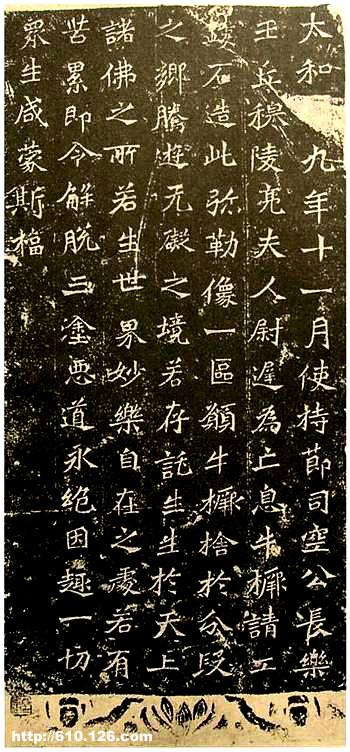 太和　九年十一月使持節司空公長樂
王丘穆陵亮夫人尉遲為亡息牛橛請工
鏤石造此弥勒像一區願牛橛捨於分段
之鄉騰遊无礙之境若存託生生於天上
諸佛之所若生世界妙樂自在之處若有
苦累即令解脫三塗惡道永絕因趣一切
眾生咸蒙斯福
http://610.126.com/